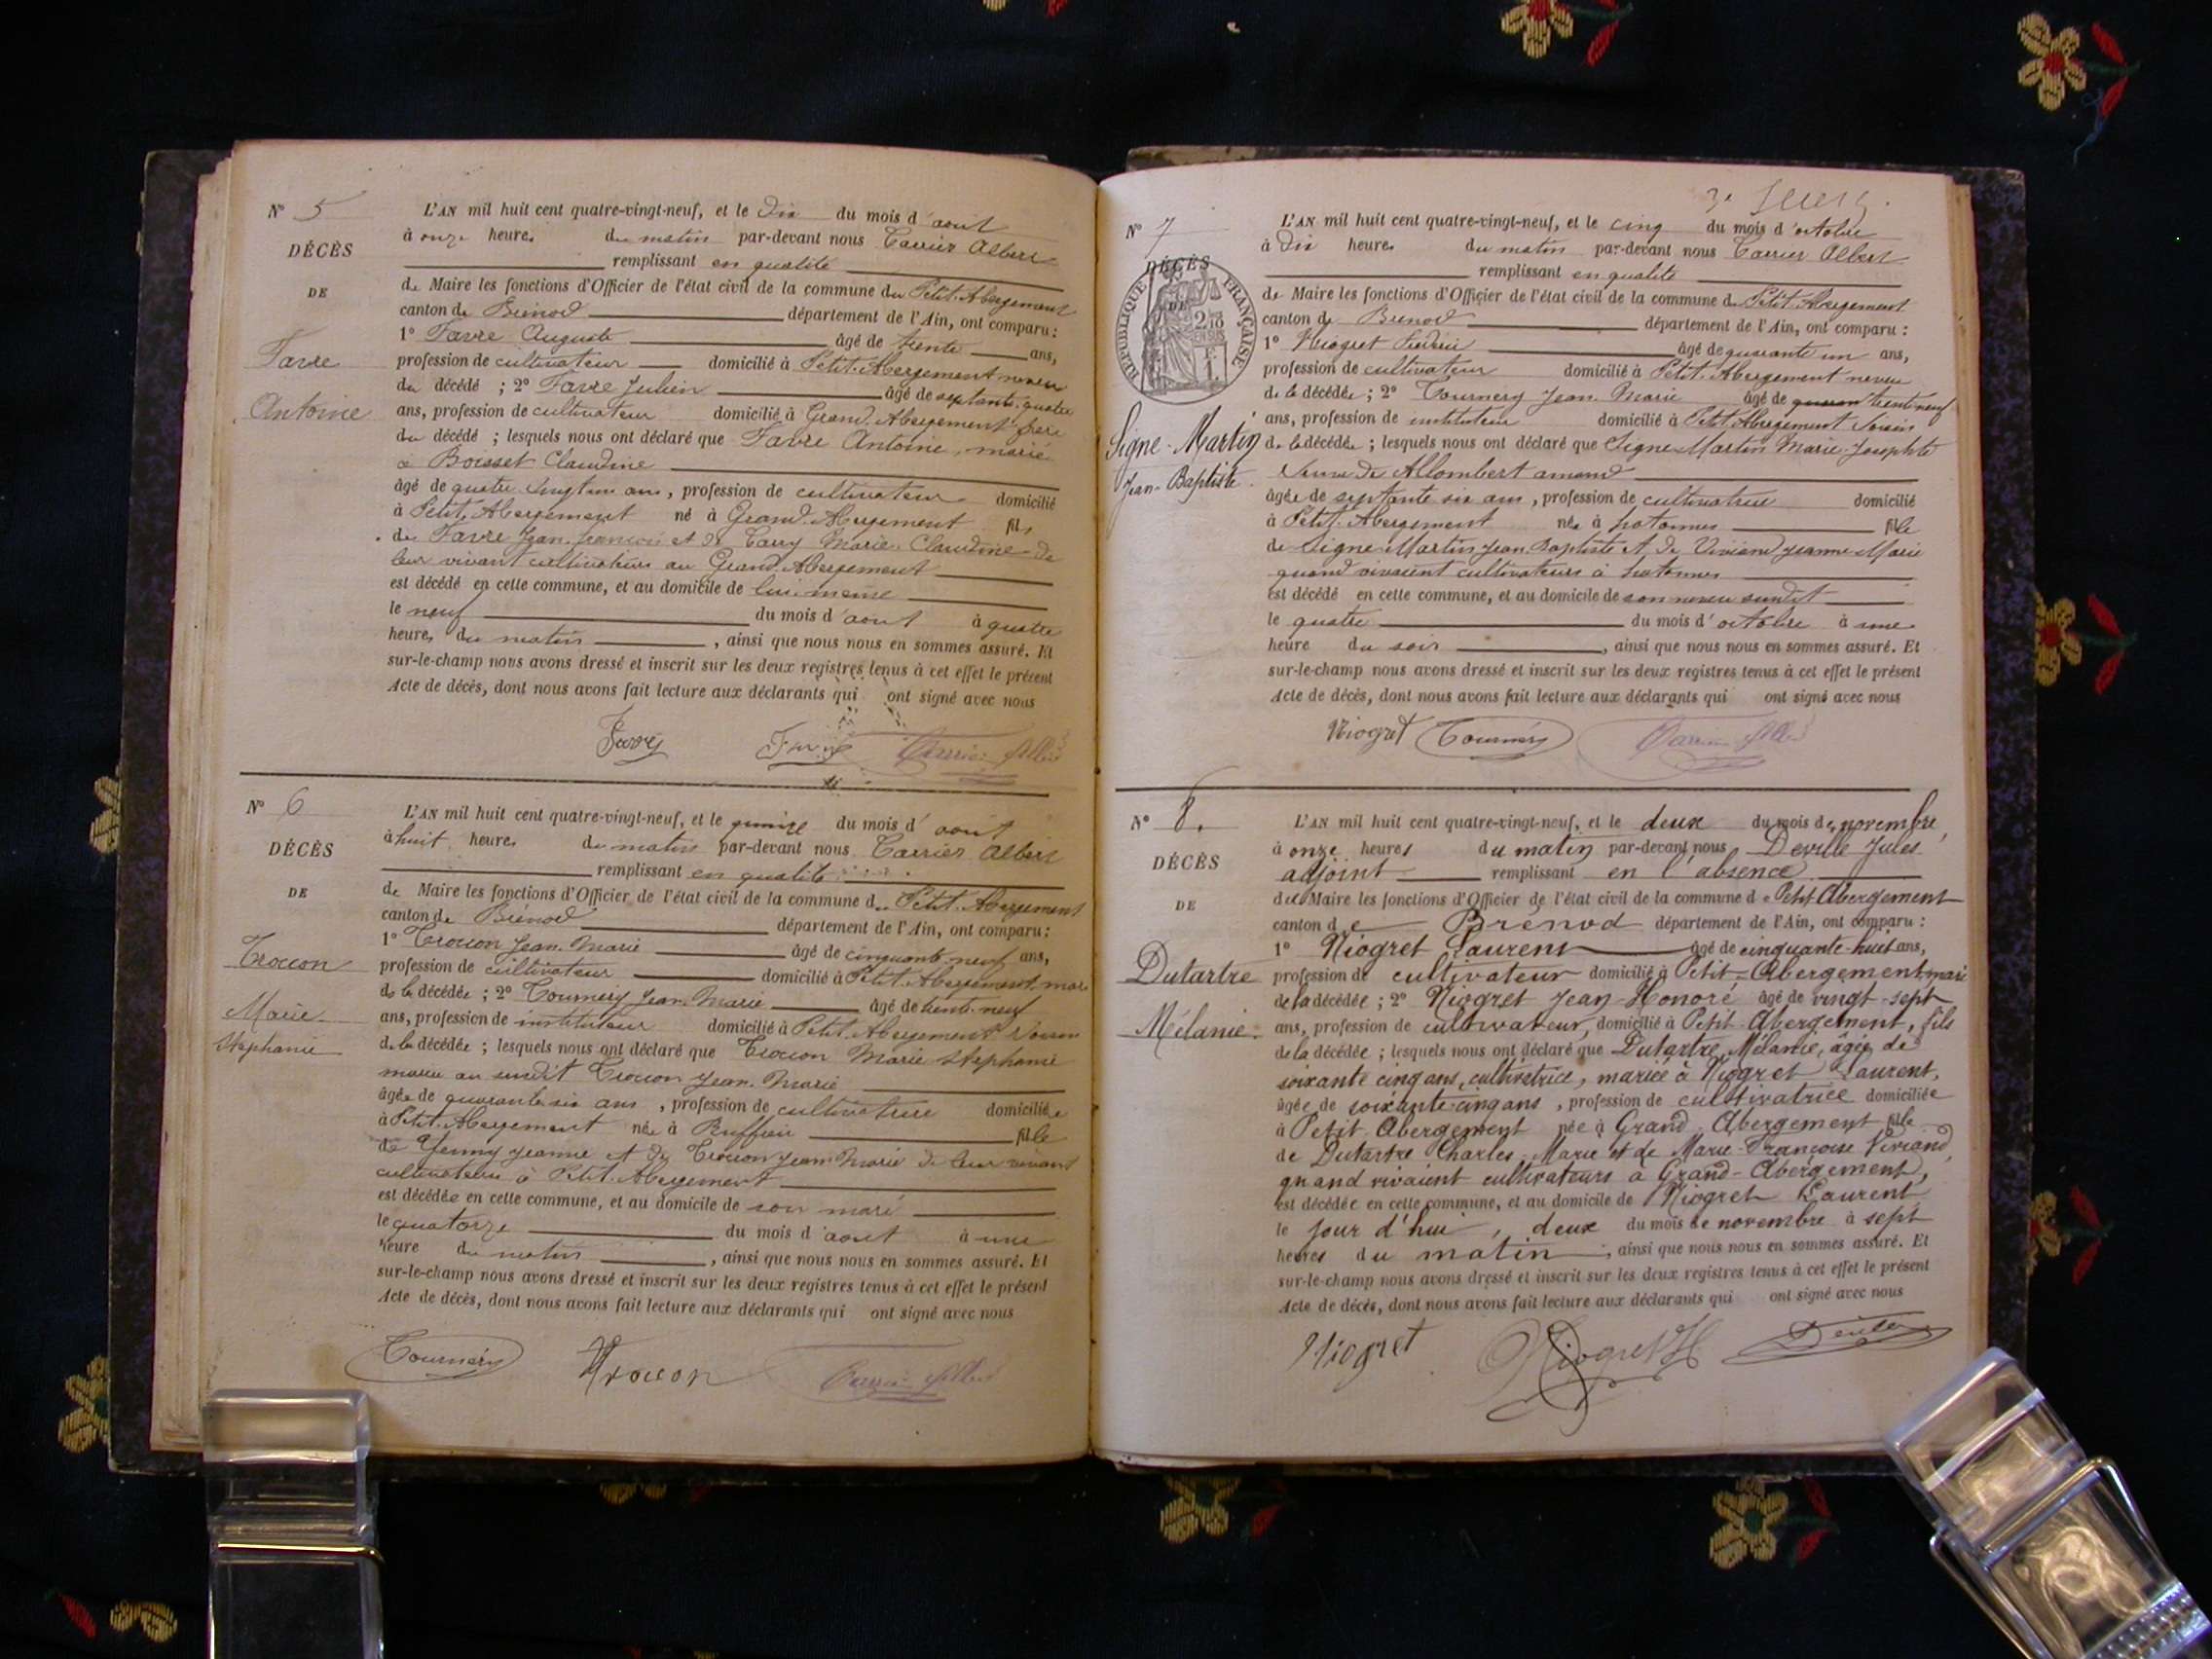 N° 5
DÉCÈS
DE
Favre
Antoine
L'AN mil huit cent quatre-vingt-neuf, et le dix du mois d'aout
à onze heures du matin par-devant nous Carrier Albert
remplissant en qualité
de Maire les fonctions d'Officier de l'état civil de la commune du Petit-Abergement
canton de Brénod département de l'Ain, ont comparu :
1° Favre Auguste âgé de trente ans,
profession de cultivateur domicilié à Petit-Abergement neveu
du décédé ; 2° Favre Julien âgé de septante-quatre
ans, profession de cultivateur domicilié à Grand-Abergement frère
du décédé ; lesquels nous ont déclaré que Favre Antoine, marié
à Boisset Claudine
âgé de quatre vingt un ans, profession de cultivateur domicilié
à Petit-Abergement né à Grand-Abergement fils
de Favre Jean-François et de Carry Marie-Claudine de
leur vivant cultivateurs au Grand-Abergement
est décédé en cette commune, et au domicile de lui-même
le neuf du mois d'aout à quatre
heures du matin, ainsi que nous nous en sommes assuré. Et
sur-le-champ nous avons dressé et inscrit sur les deux registres tenus à cet effet le présent
Acte de décès, dont nous avons fait lecture aux déclarants qui ont signé avec nous
Favre Favre Carrier Albert
N° 6
DÉCÈS
DE
Trocon
Marie
Stéphanie
L'AN mil huit cent quatre-vingt-neuf, et le quinze du mois d'aout
à huit heures du matin par-devant nous Carrier Albert
remplissant en qualité
de Maire les fonctions d'Officier de l'état civil de la commune du Petit-Abergement
canton de Brénod département de l'Ain, ont comparu :
1° Trocon Jean-Marie âgé de cinquante-neuf ans,
profession de cultivateur domicilié à Petit-Abergement, mari
de la décédée ; 2° Tournery Jean-Marie âgé de trente-neuf
ans, profession de instituteur domicilié à Petit-Abergement Voisin
de la décédée ; lesquels nous ont déclaré que Trocon Marie Stéphanie
mariée au susdit Trocon Jean-Marie
âgée de quarante six ans, profession de cultivatrice domiciliée
à Petit-Abergement née à Ruffieu fille
de Jenny Jeanne et de Trocon Jean-Marie de leur vivant
cultivateurs à Petit-Abergement
est décédée en cette commune, et au domicile de son mari
le quatorze du mois d'aout à une
heure du matin, ainsi que nous nous en sommes assuré. Et
sur-le-champ nous avons dressé et inscrit sur les deux registres tenus à cet effet le présent
Acte de décès, dont nous avons fait lecture aux déclarants qui ont signé avec nous
Tournery Trocon Carrier Albert
N° 7
DÉCÈS
DE
RÉPUBLIQUE FRANÇAISE
Signe-Martin
Jean-Baptiste
L'AN mil huit cent quatre-vingt-neuf, et le cinq du mois d'octobre
à dix heures du matin par-devant nous Carrier Albert
remplissant en qualité
de Maire les fonctions d'Officier de l'état civil de la commune du Petit-Abergement
canton de Brenod département de l'Ain, ont comparu :
1° Niogret âgé de quarante un ans,
profession de cultivateur domicilié à Petit-Abergement neveu
de la décédée ; 2° Tournery Jean-Marie âgé de trente-neuf
ans, profession de instituteur domicilié à Petit-Abergement Voisin
de la décédée ; lesquels nous ont déclaré que Signe-Martin Marie-Josephte
veuve de Allombert amand
âgée de septante six ans, profession de cultivatrice domicilié
à Petit-Abergement née à hotonnes fille
de Signe-Martin Jean-Baptiste et de Viviand Jeanne-Marie
quand vivaient cultivateurs à hotonnes
est décédé en cette commune, et au domicile de son neveu susdit
le quatre du mois d'octobre à une
heure du soir, ainsi que nous nous en sommes assuré. Et
sur-le-champ nous avons dressé et inscrit sur les deux registres tenus à cet effet le présent
Acte de décès, dont nous avons fait lecture aux déclarants qui ont signé avec nous
Niogret Tournery Carrier Albert
N° 8.
DÉCÈS
DE
Dutartre
Mélanie.
L'AN mil huit cent quatre-vingt-neuf, et le deux du mois de novembre,
à onze heures du matin par-devant nous Deville Jules
adjoint remplissant en l'absence
du Maire les fonctions d'Officier de l'état civil de la commune de Petit-Abergement
canton de Brénod département de l'Ain, ont comparu :
1° Niogret Laurent âgé de cinquante-huit ans,
profession de cultivateur domicilié à Petit-Abergement, mari
de la décédée ; 2° Niogret Jean-Honoré âgé de vingt-sept
ans, profession de cultivateur, domicilié à Petit-Abergement, fils
de la décédée ; lesquels nous ont déclaré que Dutartre Mélanie, âgée de
soixante cinq ans, cultivatrice, mariée à Niogret Laurent,
âgée de soixante-cinq ans, profession de cultivatrice domiciliée
à Petit-Abergement née à Grand-Abergement fille
de Dutartre Charles-Marie et de Marie-Françoise Viviand,
quand vivaient cultivateurs à Grand-Abergement,
est décédée en cette commune, et au domicile de Niogret Laurent
le jour d'hui, deux du mois de novembre à sept
heures du matin, ainsi que nous nous en sommes assuré. Et
sur-le-champ nous avons dressé et inscrit sur les deux registres tenus à cet effet le présent
Acte de décès, dont nous avons fait lecture aux déclarants qui ont signé avec nous
Niogret Niogret H Deville